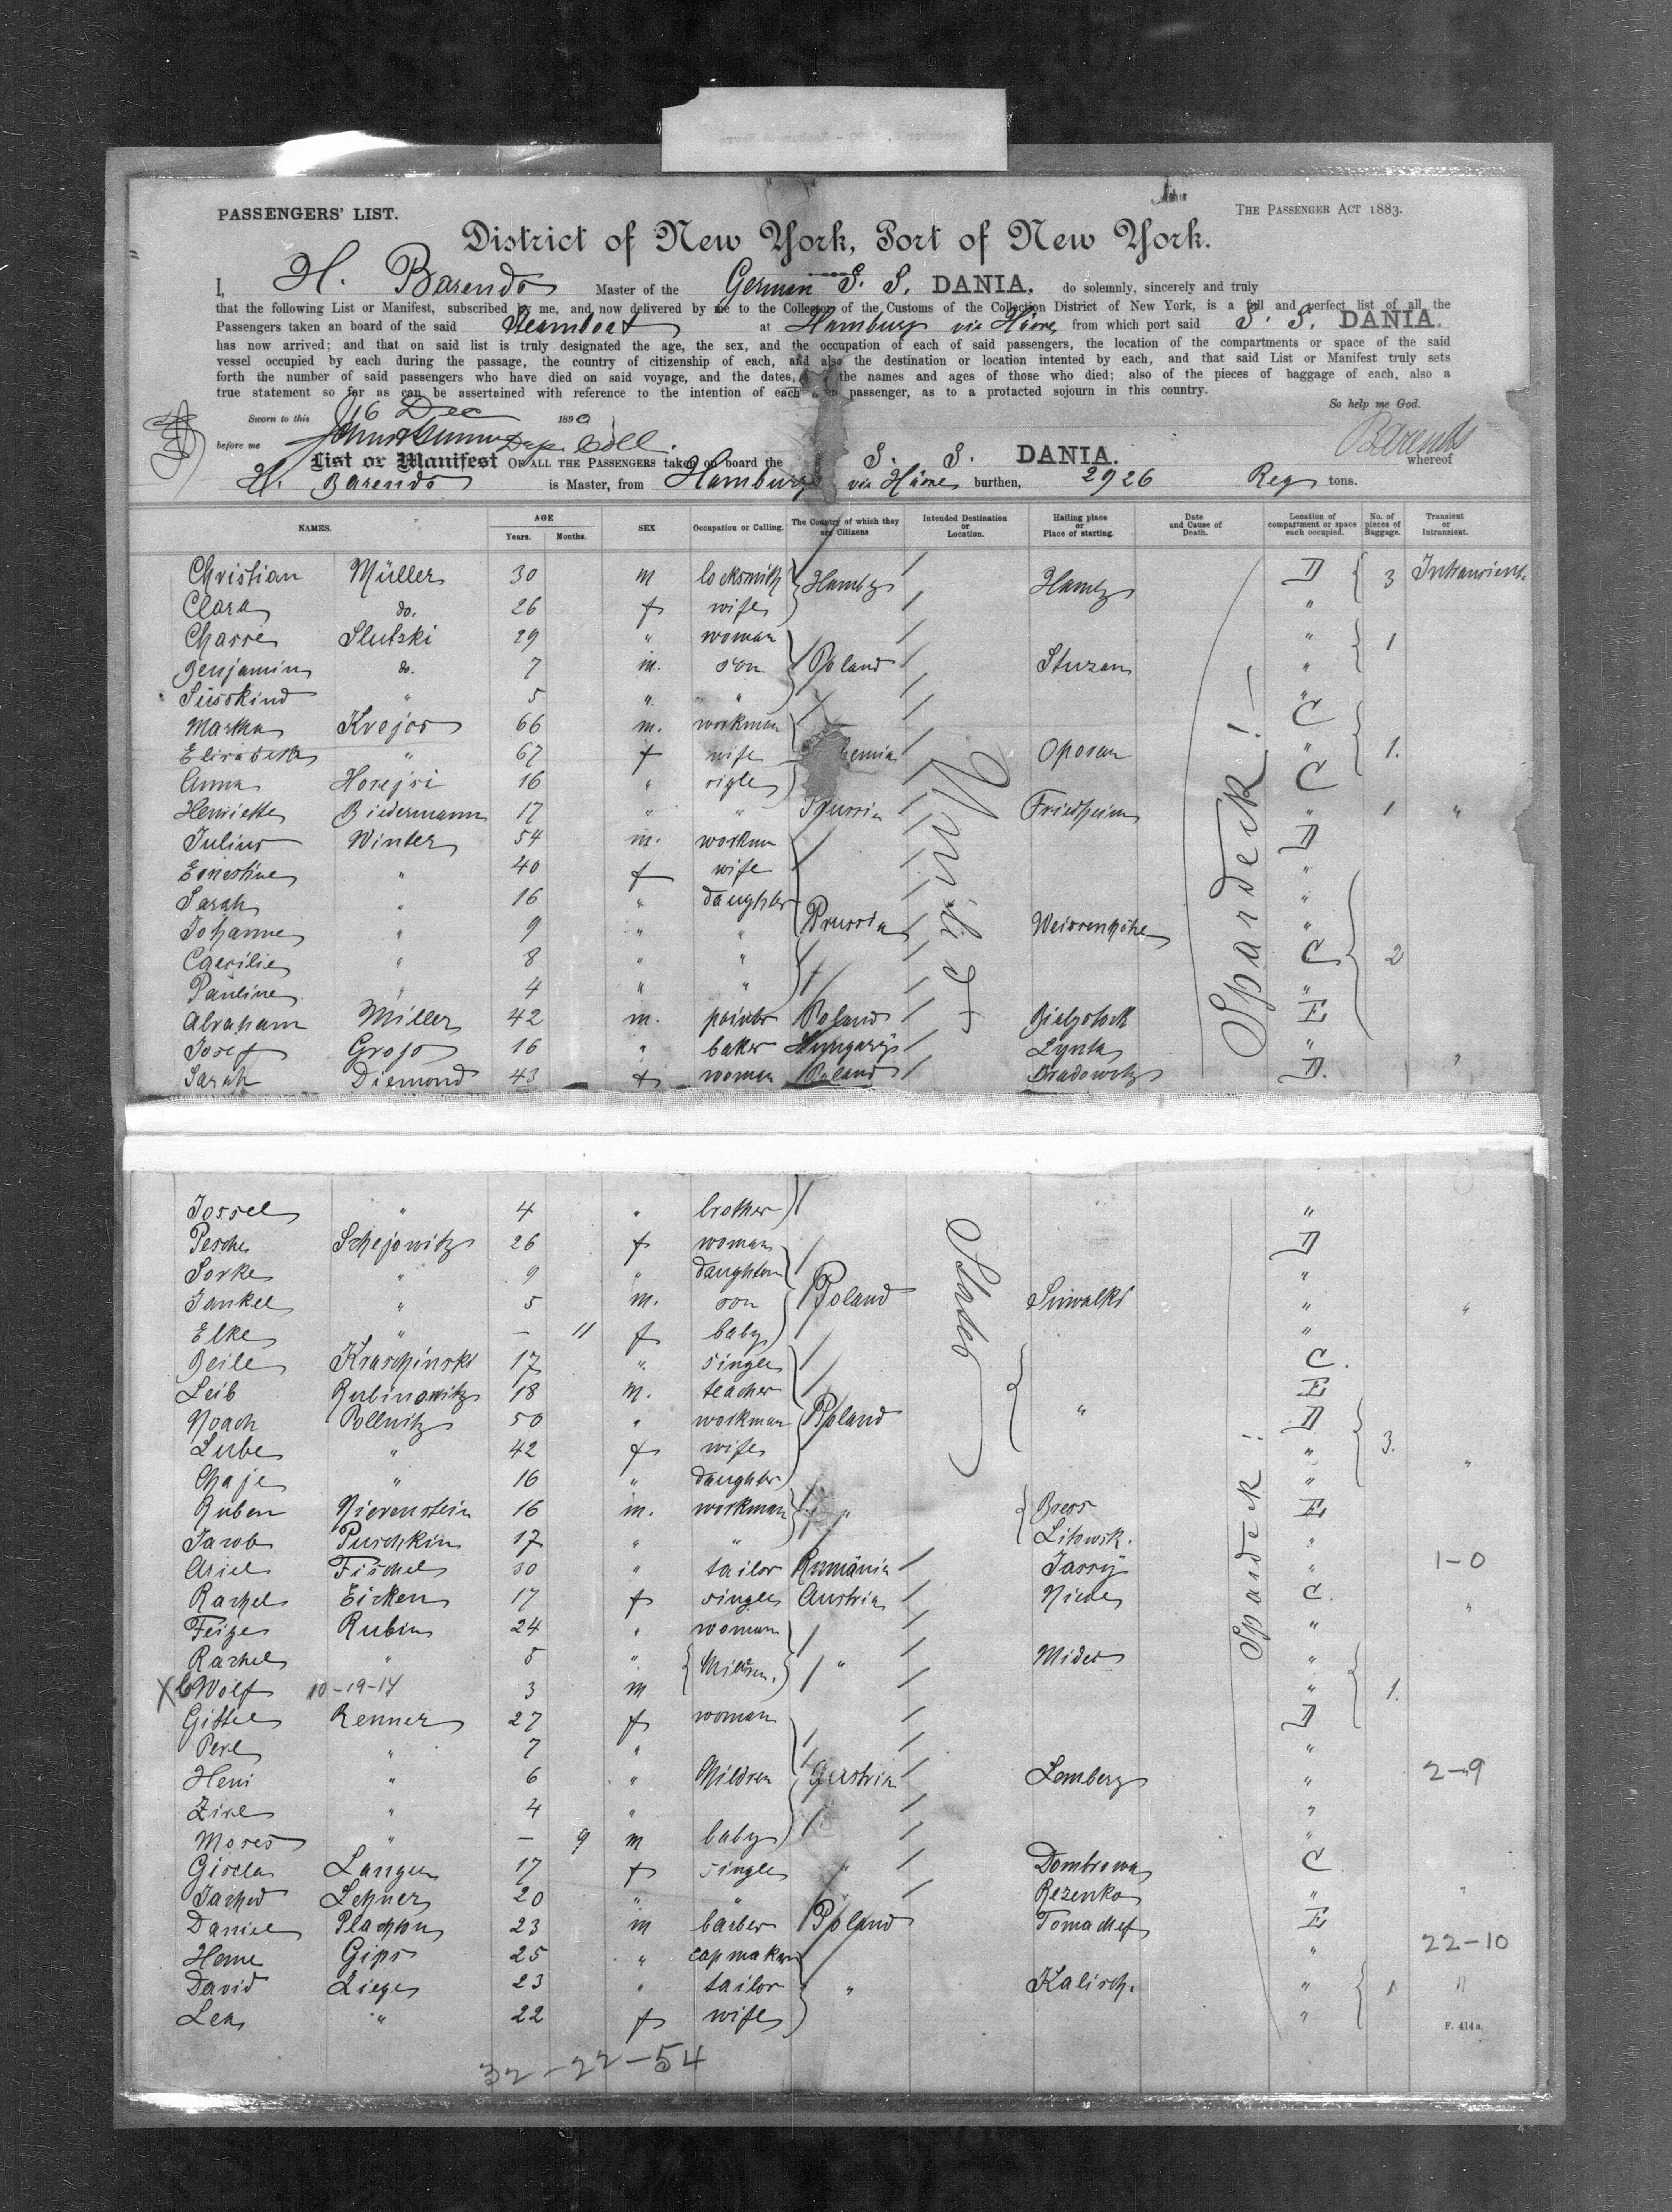 PASSENGERS' LIST.
THE PASSENGER ACT 1883.
District of New York, Port of New York.
I, H. Barends Master of the German S. S. DANIA. do solemnly, sincerely and truly
that the following List or Manifest, subscribed by me, and now delivered by me to the Collector of the Customs of the Collection District of New York, is a full and perfect list of all the
Passengers taken an board of the said Steamboat at Hamburg via Hâvre, from which port said S. S. DANIA.
has now arrived; and that on said list is truly designated the age, the sex, and the occupation of each of said passengers, the location of the compartments or space of the said
vessel occupied by each during the passage, the country of citizenship of each, and also the destination or location intented by each, and that said List or Manifest truly sets
forth the number of said passengers who have died on said voyage, and the dates, the names and ages of those who died; also of the pieces of baggage of each, also a
true statement so far as can be assertained with reference to the intention of each passenger, as to a protacted sojourn in this country.
So help me God.
Sworn to this 16 Dec 1890
before me Dep. Coll.
Barends
List or Manifest OF ALL THE PASSENGERS taken on board the S. S. DANIA. whereof
H. Barends is Master, from Hamburg via Hâvre burthen, 2926 Reg tons.
NAMES. AGE Years. Months. SEX Occupation or Calling. The Country of which they are Citizens Intended Destination or Location. Hailing place or Place of starting. Date and Cause of Death. Location of compartment or space each occupied. No. of pieces of Baggage. Transient or Intransient.
Christian Müller 30 m locksmith Hambg Hambg D 3 Intransient
Clara do. 26 f wife "
Chasse Slutzki 29 " woman " 1
Benjamin do. 7 m. son Poland Stuzan "
Süsskind " 5 " " "
Martha Krejos 66 m. workman C
Elisabeth " 67 f wife Oposan " 1.
Anna Horejsi 16 " sigle C
Henriette Biedermann 17 " " Prussia Friedheim " 1 "
Julius Winter 54 m. workman D
Ernestine " 40 f wife "
Sarah " 16 " daughter "
Johanne " 9 " " Prussia Weissenhöhe "
Caecilie " 8 " " C 2
Pauline " 4 " " "
Abraham Miller 42 m. painter Poland Bialystock E
Josef Gross 16 " baker Hungary Lynta "
Sarah Diemond 43 f woman Poland Bradowitz D. "
United
Spardeck!
Jossel " 4 " brother "
Pesche Schejowitz 26 f woman D
Sorke " 9 " daughter "
Jankel " 5 m. son Poland Suwalki " "
Elke " — 11 f baby "
Beile Kraschinski 17 " single C.
Leib Rubinowitz 18 m. teacher E
Noach Pollnitz 50 " workman Poland " D
Lube " 42 f wife " 3.
Chaje " 16 " daughter " "
Ruben Nierenstein 16 m. workman " Bress E
Jacob Puschkin 17 " " Litowsk. "
Ariel Fischel 30 " tailor Rumänia Jassy " 1-0
Rachel Eicken 17 f single Austria Niede C. "
Feige Rubin 24 " woman "
Rachel " 5 " Children. " Mides "
Wolf 10-19-14 3 m " 1.
Gittel Renner 27 f woman D
Perl " 7 " "
Heni " 6 " Children Austria Lemberg " 2-9
Zirl " 4 " "
Moses " — 9 m baby "
Gisela Langer 17 f single " Dombrowa C
Jached Lehner 20 " " " Rezenko " "
Daniel Plachhn 23 m barber Poland Tomachef E
Heme Gips 25 " capmaker " 22-10
David Ziege 23 " tailor " Kalisch. " 1 "
Lea " 22 f wife "
States
Spardeck!
F. 414a.
32-22-54